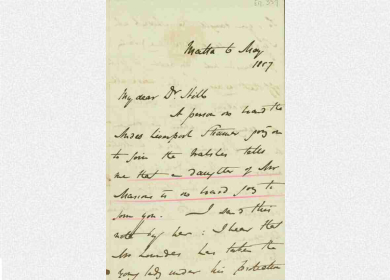 Malta 6 May
1857
My dear Dr Hill
A person on board the
Liverpool Steamer going on
to join the tells
me that a daughter of Mr
is on board going to
join you. — I send this
note by her : I hear that
Mr has taken the
young lady under his protection